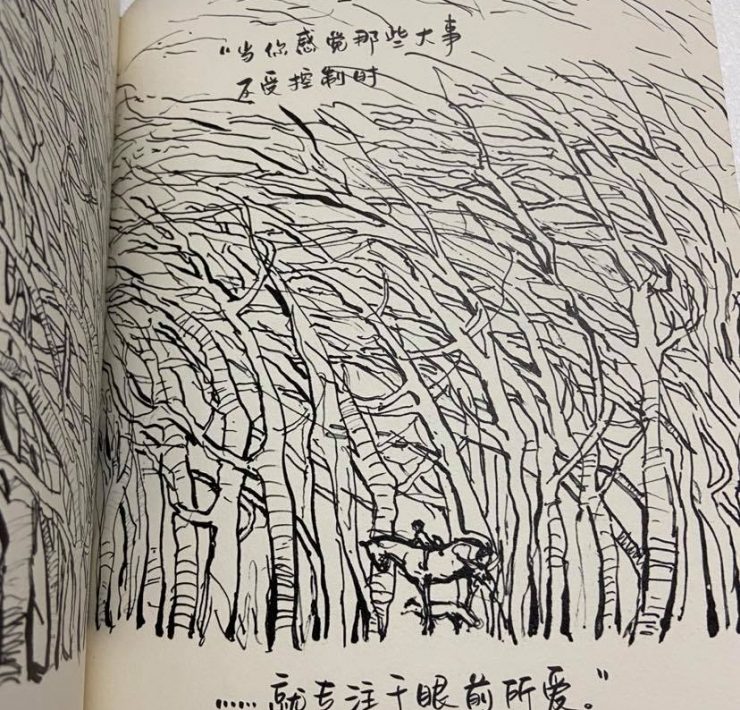 “当你感觉那些大事
不受控制时
……就专注于眼前所爱。”